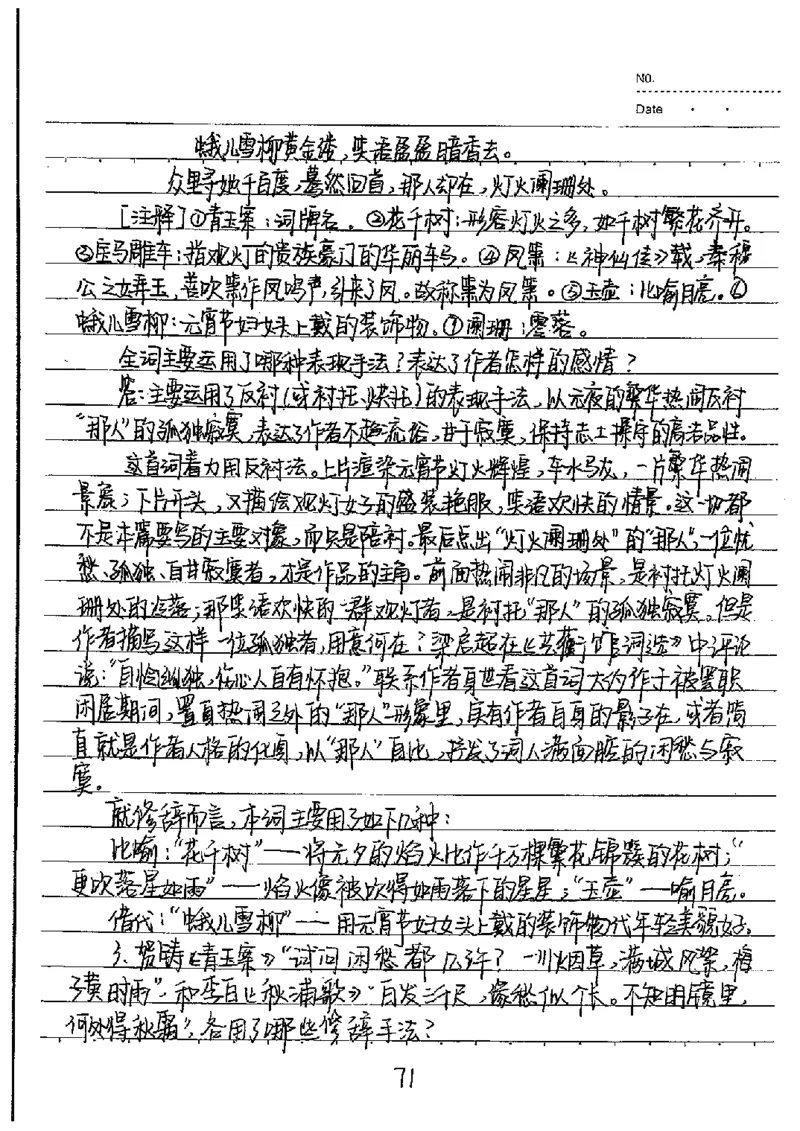 NO.
Date
蛾儿雪柳黄金缕,笑语盈盈暗香去。
众里寻她千百度,蓦然回首,那人却在,灯火阑珊处。
[注解]①青玉案:词牌名。②花千树:形容灯火之多,如千树繁花齐开。
③宝马雕车:指观灯的贵族豪门的华丽车马。④凤箫:《神仙传》载,秦穆
公之女弄玉,善吹箫作凤鸣声,引来了凤。故称箫为凤箫。⑤玉壶:比喻月亮。⑥
蛾儿雪柳:元宵节妇女头上戴的装饰物。⑦阑珊:零落。
全词主要运用了哪种表现手法?表达了作者怎样的感情?
答:主要运用了反衬(或衬托、烘托)的表现手法,以元夜的繁华热闹反衬
“那人”的孤独寂寞,表达了作者不趋流俗,甘于寂寞,保持志士操守的高洁品性。
这首词着力用反衬法。上片渲染元宵节灯火辉煌,车水马龙,一片繁华热闹
景象;下片开头,又描绘观灯女子的盛装艳服,笑语欢快的情景。这一切都
不是本篇要写的主要对象,而只是陪衬。最后点出“灯火阑珊处”的“那人”,一位忧
愁、孤独、自甘寂寞者,才是作品的主角。前面热闹非凡的场景,是衬托灯火阑
珊处的冷落;那笑语欢快的一群观灯者,是衬托“那人”的孤独寂寞。但是
作者描写这样一位孤独者,用意何在?梁启超在《艺蘅馆词选》中评论
说:“自怜幽独,伤心人自有怀抱。”联系作者身世看这首词大约作于被罢职
闲居期间,置身热闹之外的“那人”形象里,实有作者自身的影子在,或者简
直就是作者人格的化身,以“那人”自比,抒发了词人满面腔的闲愁与寂
寞。
就修辞而言,本词主要用了如下几种:
比喻:“花千树”——将元夕的焰火比作千万棵繁花锦簇的花树;“
更吹落星如雨”——焰火像被吹得如雨落下的星星;“玉壶”——喻月亮。
借代:“蛾儿雪柳”——用元宵节妇女头上戴的装饰物代年轻美貌女子。
3、贺铸《青玉案》“试问闲愁都几许?一川烟草,满城风絮,梅
子黄时雨”和李白《秋浦歌》“白发三千尺,缘愁似个长。不知明镜里,
何处得秋霜”,各用了哪些修辞手法?
71